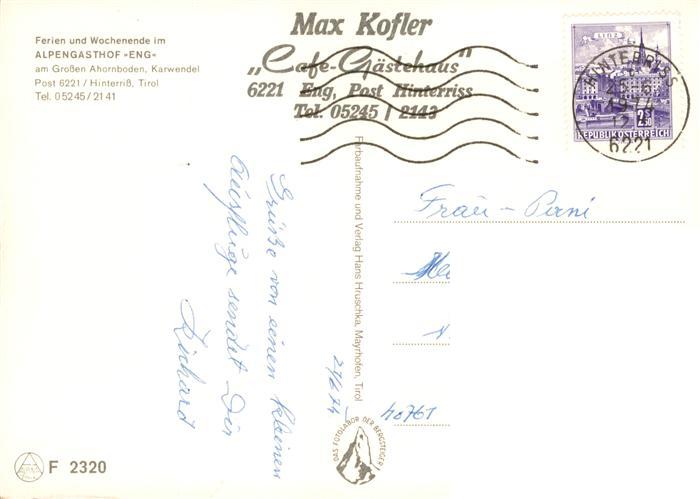 Ferien und Wochenende im
ALPENGASTHOF »ENG«
am Großen Ahornboden, Karwendel
Post 6221 / Hinterriß, Tirol
Tel. 05245/2141
Max Kofler
„Cafe-Gästehaus"
6221 Eng, Post Hinterriss
Tel. 05245 / 2143
LINZ
2.50
REPUBLIK ÖSTERREICH
HINTERRISS
6221
Grüße von einem kleinen
Ausfluge sendet Dir
Richard
27/6 74
Farbaufnahme und Verlag Hans Hruschka, Mayrhofen, Tirol
DAS FOTOLABOR DER BERGSTEIGER
Frau - Pani
40761
F 2320